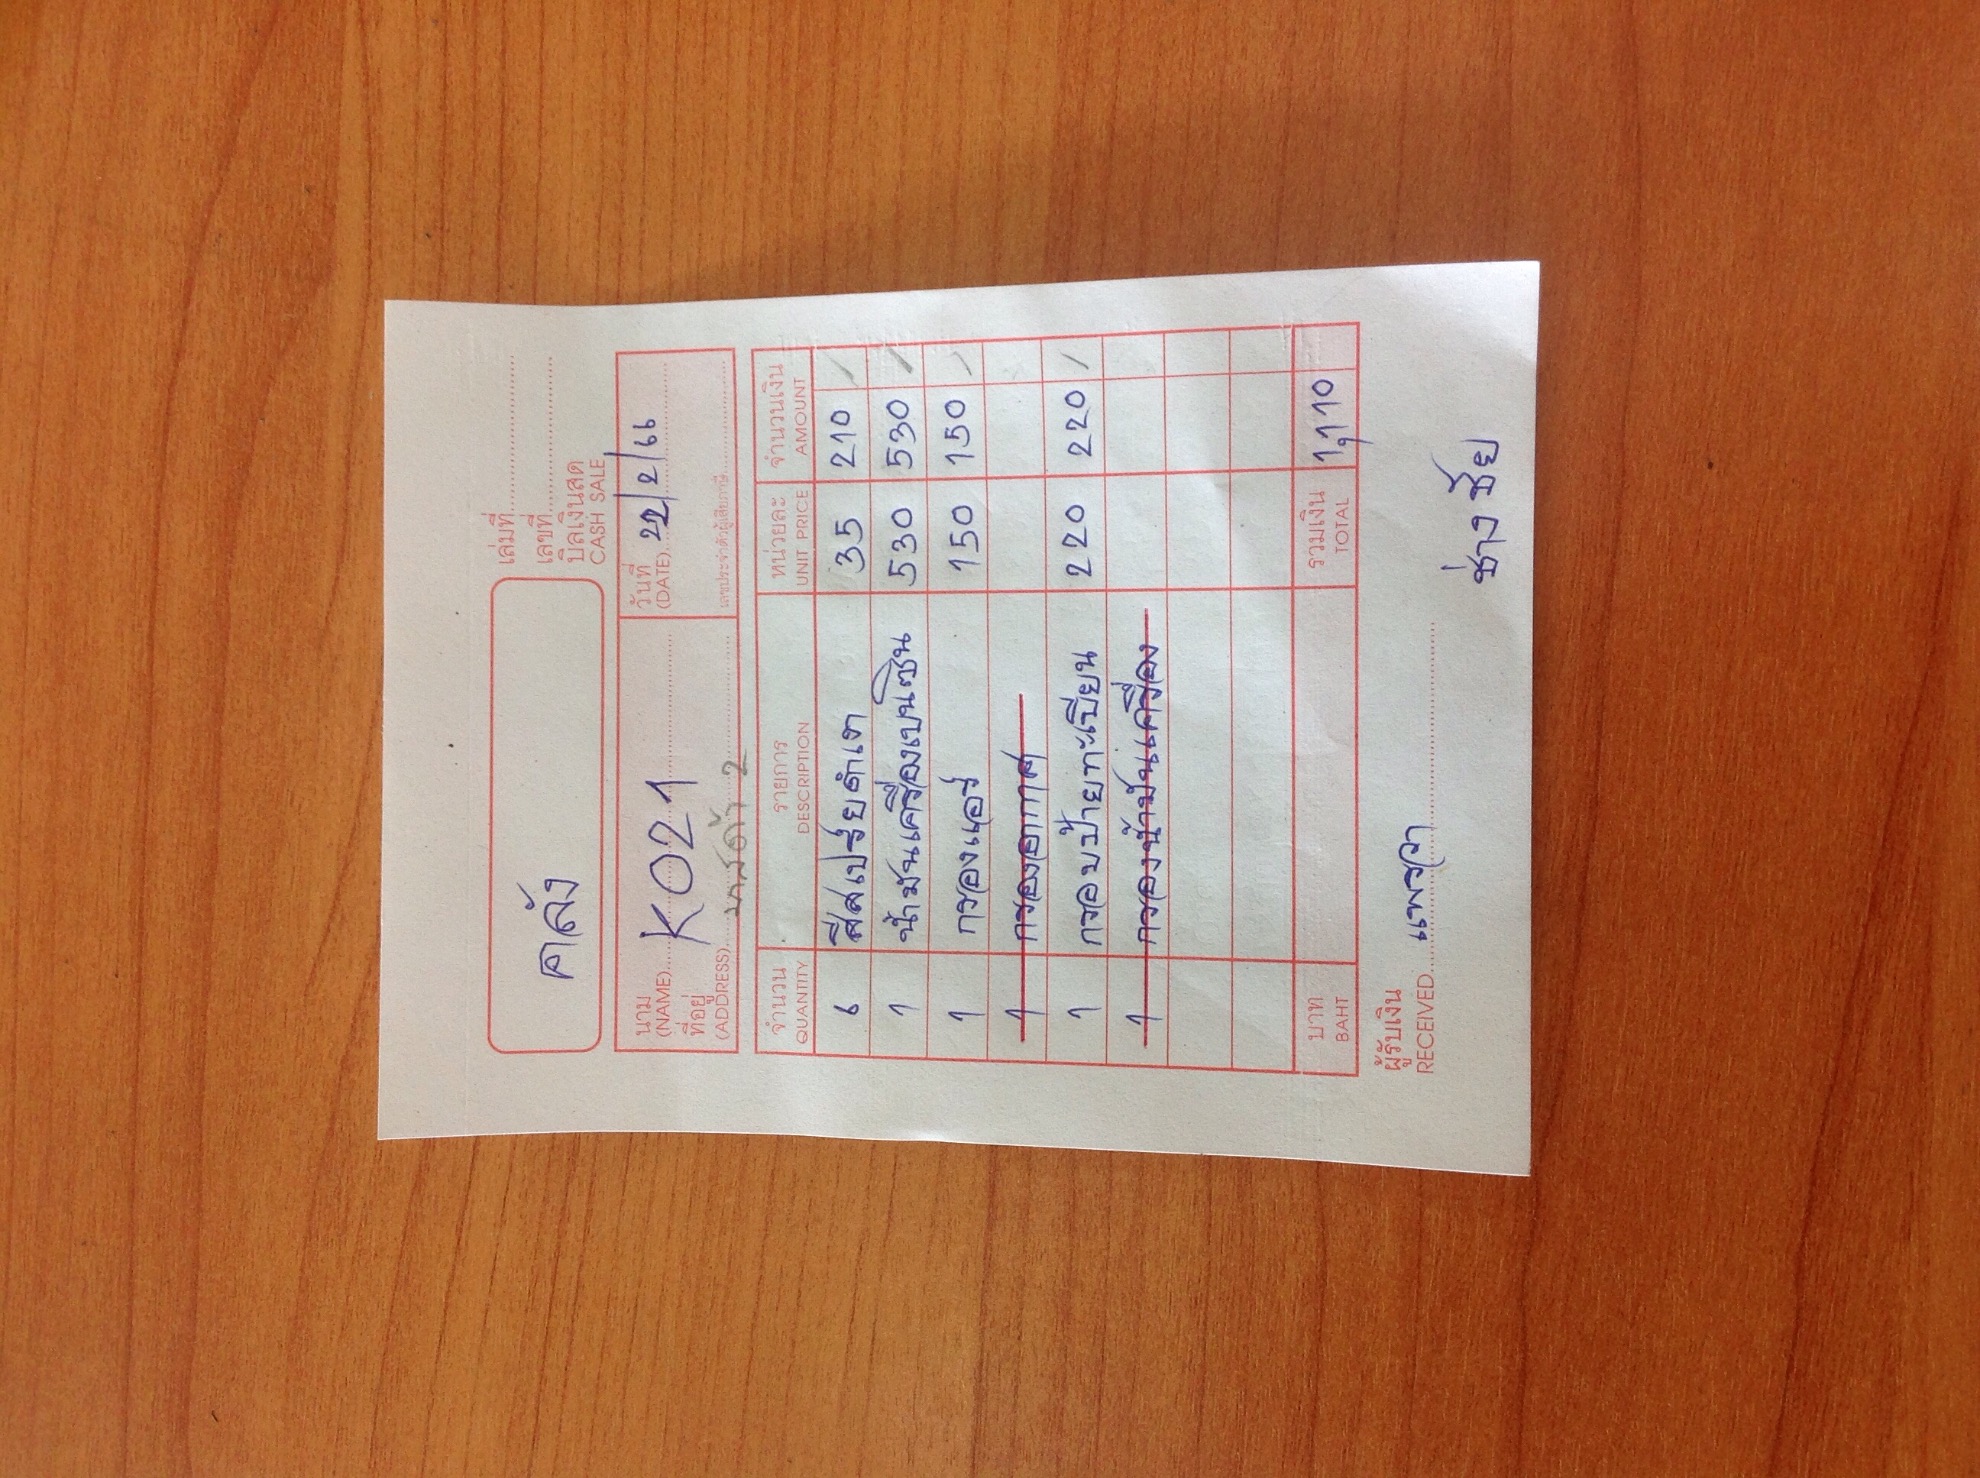 เล่มที่
เลขที่
คลัง
บิลเงินสด
CASH SALE
นาม
(NAME) K021
วันที่
(DATE) 22/2/66
ที่อยู่
(ADDRESS) 2
เลขประจำตัวผู้เสียภาษี
จำนวน รายการ หน่วยละ จำนวนเงิน
QUANTITY DESCRIPTION UNIT PRICE AMOUNT
6 สีสเปรย์ดำเงา 35 210
1 น้ำมันเครื่องเบนซิน 530 530
1 กรองแอร์ 150 150
1 กรองอากาศ
1 กรอบป้ายทะเบียน 220 220
1 กรองน้ำมันเครื่อง
บาท รวมเงิน 1,110
BAHT TOTAL
ผู้รับเงิน
RECEIVED แพรวา
ช่างชัย